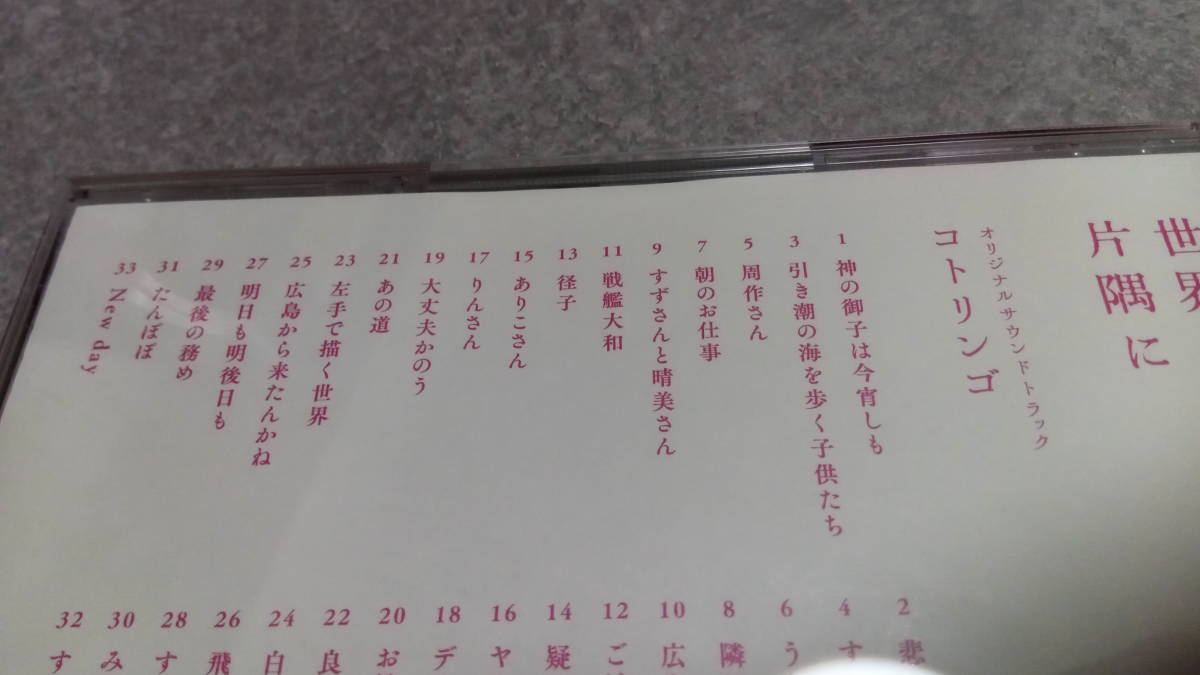 世界
片隅に
オリジナルサウンドトラック
コトリンゴ
1 神の御子は今宵しも
3 引き潮の海を歩く子供たち
5 周作さん
7 朝のお仕事
9 すずさんと晴美さん
11 戦艦大和
13 径子
15 ありこさん
17 りんさん
19 大丈夫かのう
21 あの道
23 左手で描く世界
25 広島から来たんかね
27 明日も明後日も
29 最後の務め
31 たんぽぽ
33 New day
2 悲
4 す
6 う
8 隣
10 広
12 ご
14 疑
16 ヤ
18 デ
20 お
22 良
24 白
26 飛
28 す
30 み
32 す